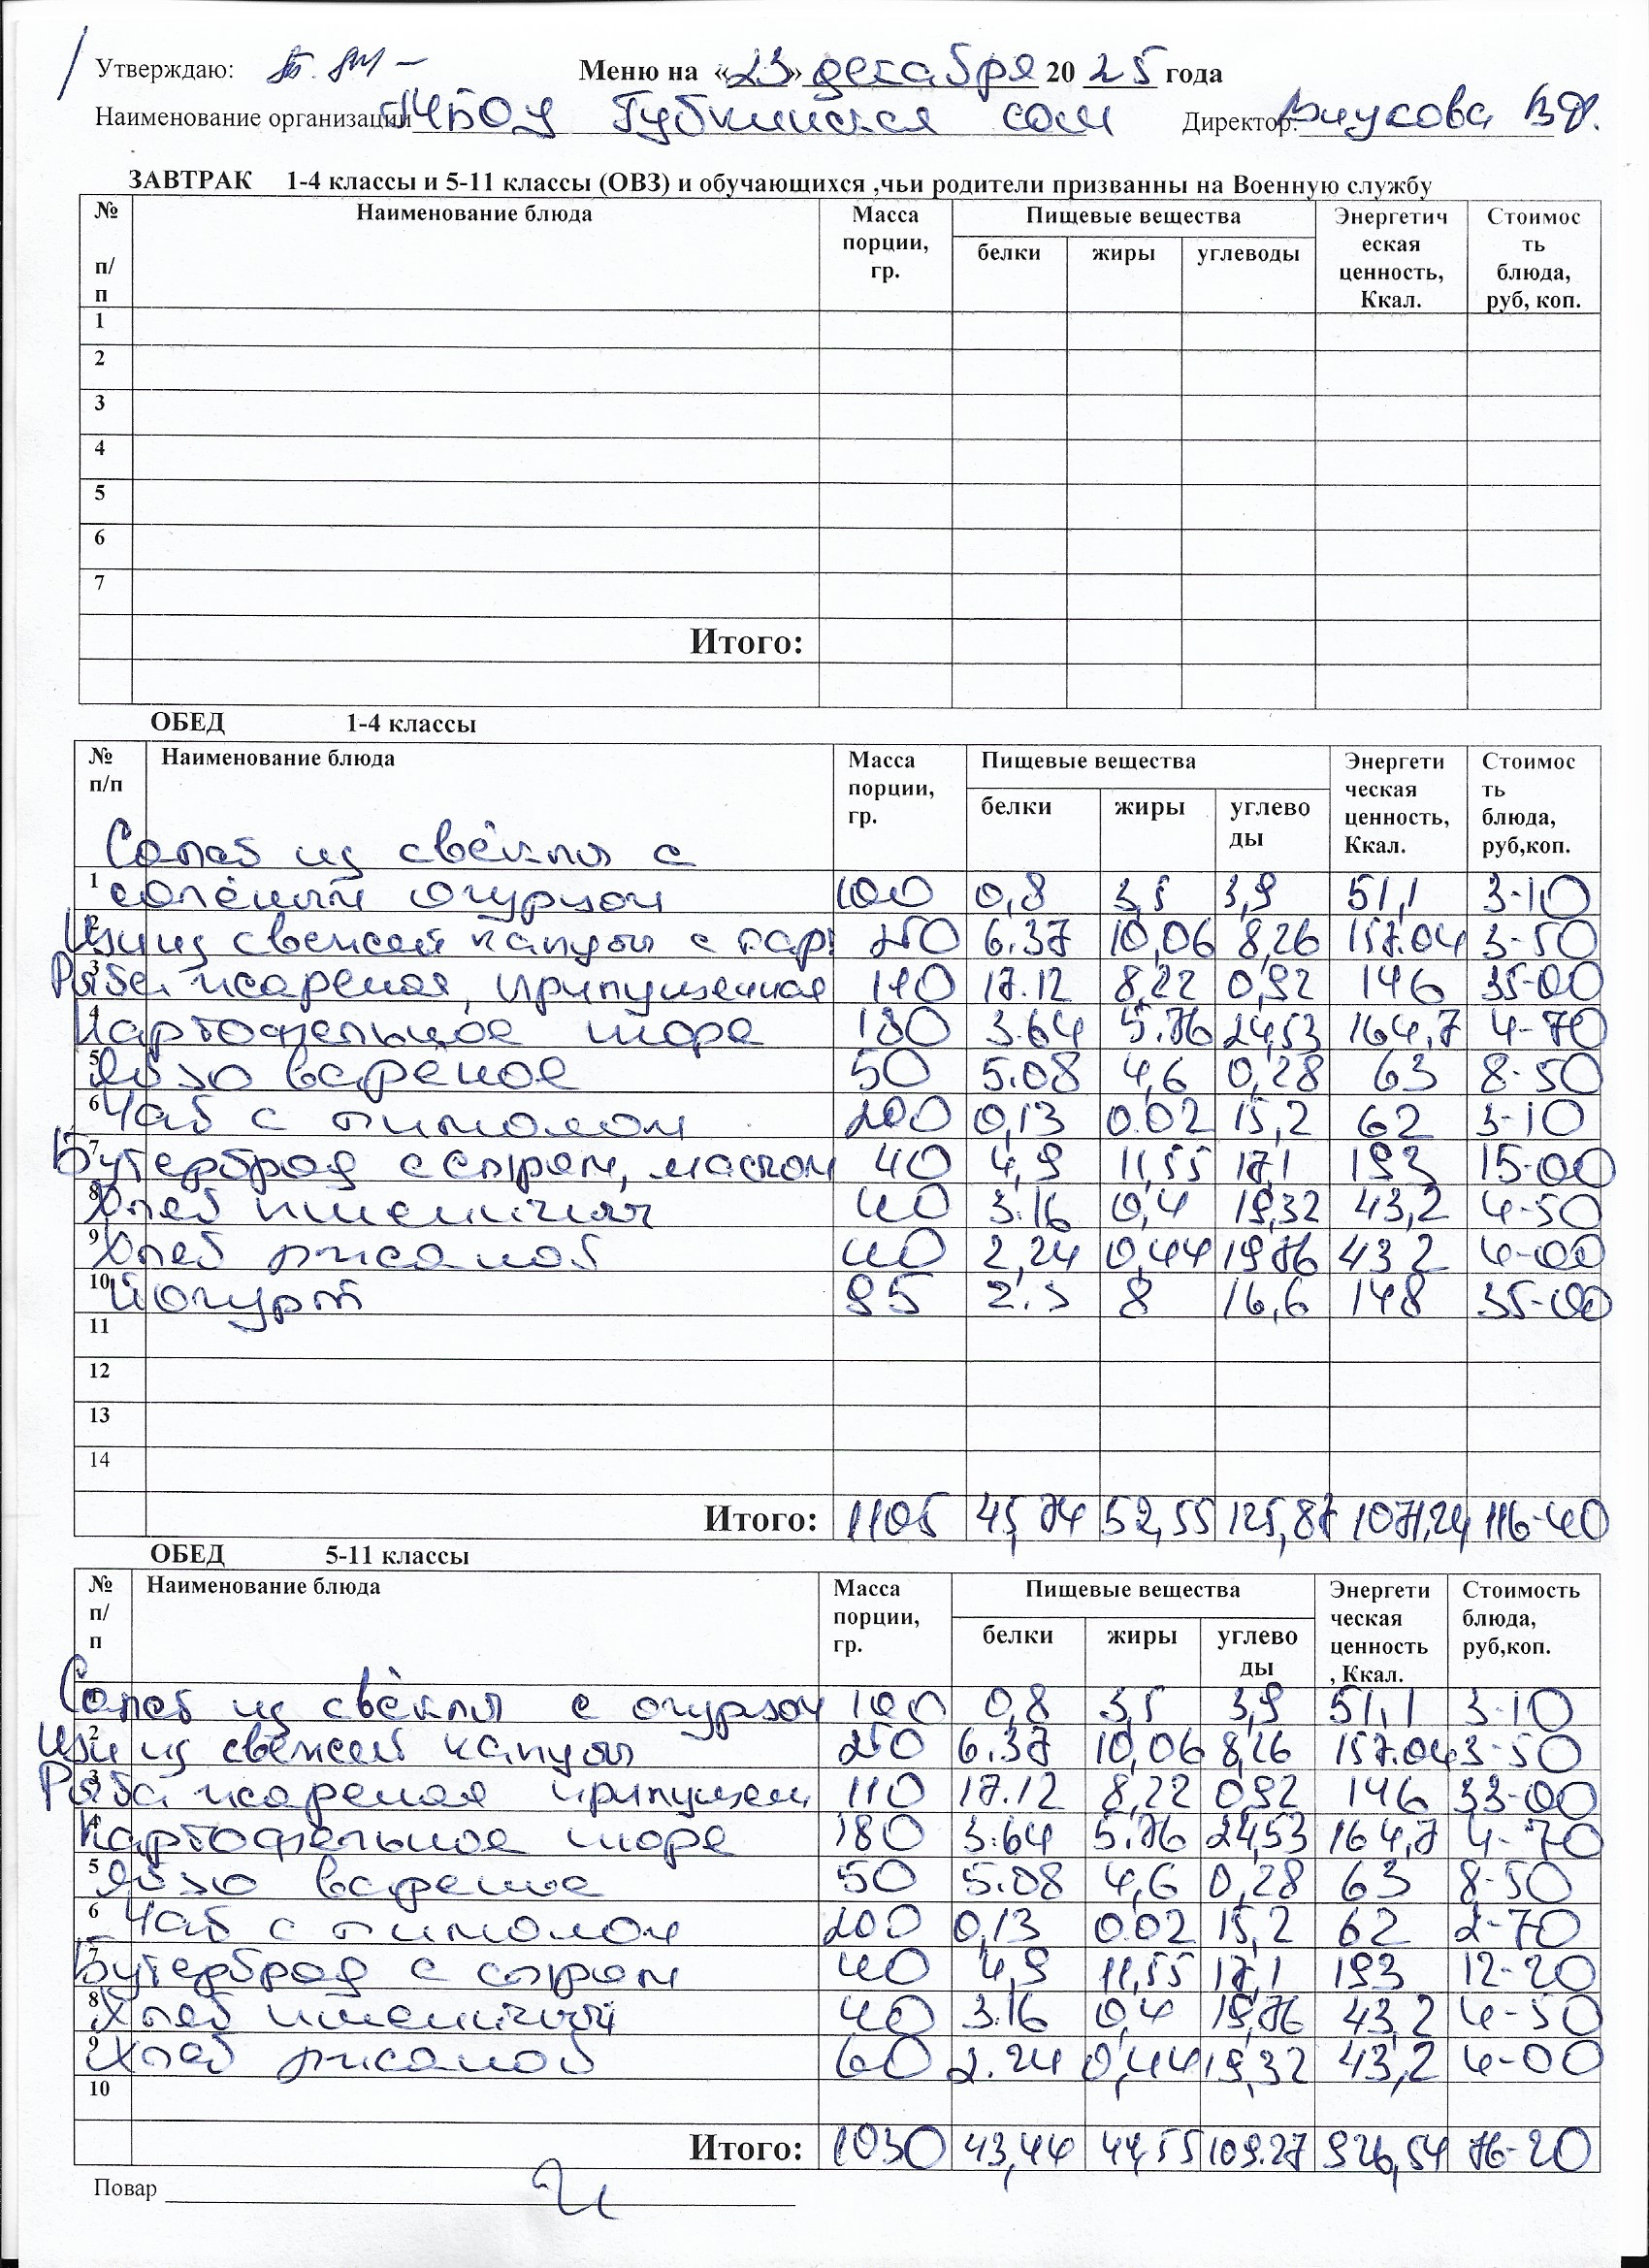 Утверждаю: Меню на «23» декабря 2025 года
Наименование организации МБОУ Губкинская сош Директор: Внукова В.Ф.
ЗАВТРАК 1-4 классы и 5-11 классы (ОВЗ) и обучающихся ,чьи родители призванны на Военную службу
№ п/п Наименование блюда Масса порции, гр. Пищевые вещества Энергетическая ценность, Ккал. Стоимость блюда, руб, коп.
белки жиры углеводы
1
2
3
4
5
6
7
Итого:
ОБЕД 1-4 классы
№ п/п Наименование блюда Масса порции, гр. Пищевые вещества Энергетическая ценность, Ккал. Стоимость блюда, руб,коп.
белки жиры углеводы
Салат из свёклы с
1 солёным огурцом 100 0,8 3,5 3,9 51,1 3-10
2 Щи из свежей капусты с кар. 250 6.37 10,06 8,26 157.04 3-50
3 Рыба жареная, припущенная 110 17.12 8,22 0,92 146 35-00
4 Картофельное пюре 180 3.64 5.76 24,53 164,7 4-70
5 Яйцо вареное 50 5.08 4,6 0,28 63 8-50
6 Чай с лимоном 200 0,13 0.02 15,2 62 3-10
7 Бутерброд с сыром, маслом 40 4,9 11,55 17,1 193 15-00
8 Хлеб пшеничный 40 3.16 0,4 19,32 43,2 4-50
9 Хлеб ржаной 40 2,24 0,44 19,76 43 2 4-00
10 Йогурт 95 2.3 8 16,6 148 35-00
11
12
13
14
Итого: 1105 45,74 52,55 125,87 1071,24 116-40
ОБЕД 5-11 классы
№ п/п Наименование блюда Масса порции, гр. Пищевые вещества Энергетическая ценность, Ккал. Стоимость блюда, руб,коп.
белки жиры углеводы
1 Салат из свёклы с огурцом 100 0,8 3,5 3,9 51,1 3-10
2 Щи из свежей капусты 250 6.37 10,06 8,26 157.04 3-50
3 Рыба жареная припущен 110 17.12 8,22 0,92 146 33-00
4 Картофельное пюре 180 3.64 5.76 24,53 164,7 4-70
5 Яйцо вареное 50 5.08 4,6 0,28 63 8-50
6 Чай с лимоном 200 0,13 0.02 15,2 62 2-70
7 Бутерброд с сыром 40 4,9 11,55 17,1 193 12-20
8 Хлеб пшеничный 40 3.16 0,4 19,76 43,2 4-50
9 Хлеб ржаной 60 2.24 0,44 19,32 43,2 4-00
10
Итого: 1030 43,44 44,55 109.27 926,54 76-20
Повар